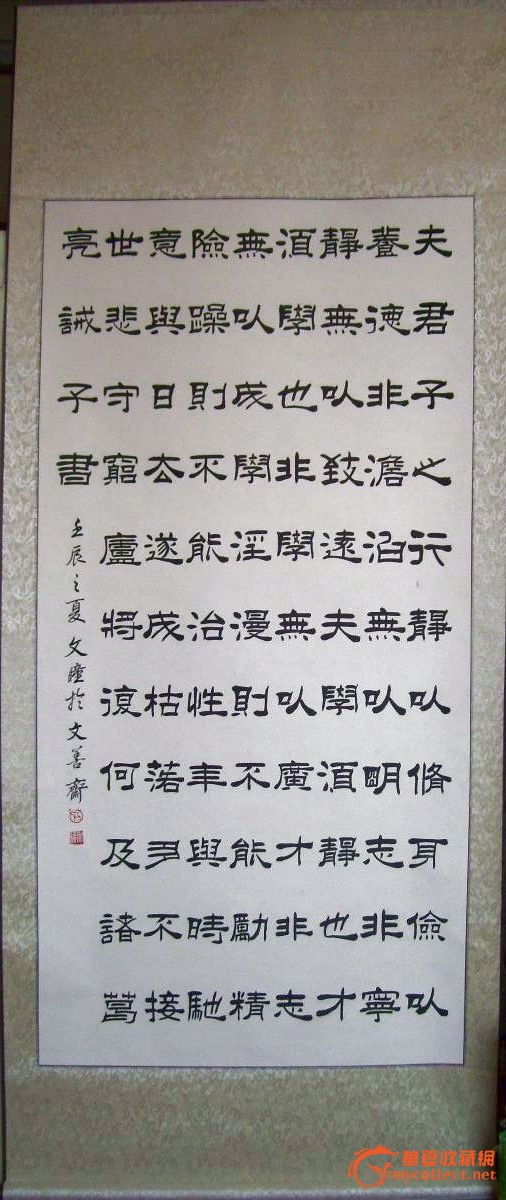 夫君子之行靜以脩身儉以
養德非澹泊無以明志非寧
靜無以致遠夫學須靜也才
須學也非學無以廣才非志
無以成學淫漫則不能勵精
險躁則不能治性年與時馳
意與日去遂成枯落多不接
世悲守窮廬將復何及諸葛
亮誡子書
壬辰之夏文瞳於文善齋
華夏收藏網
mycollect.net